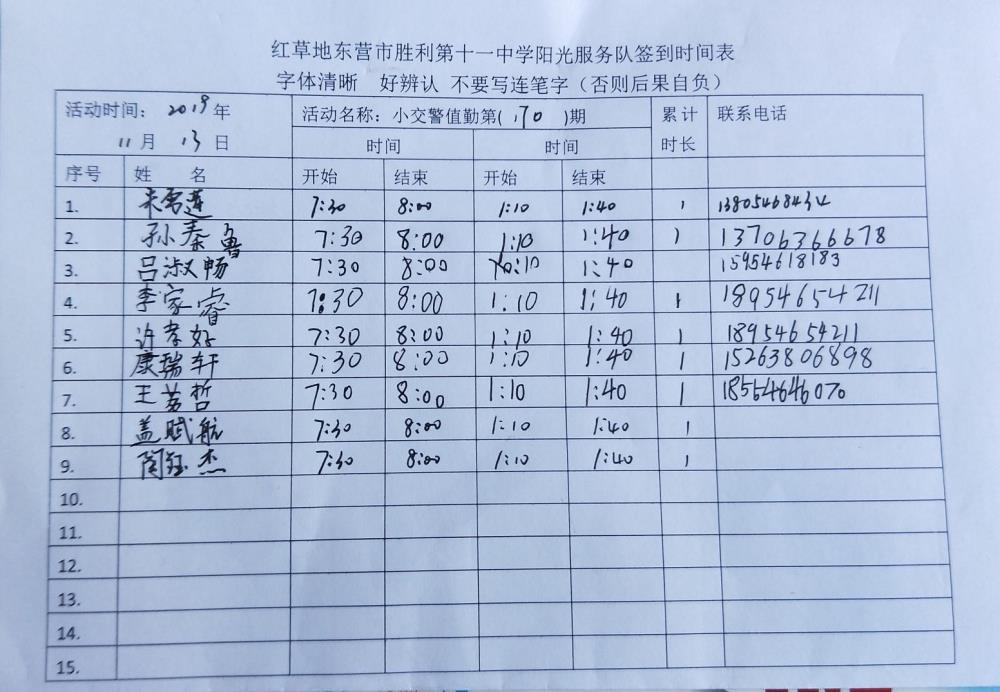 红草地东营市胜利第十一中学阳光服务队签到时间表
字体清晰 好辨认 不要写连笔字（否则后果自负）
活动时间： 2019年 活动名称：小交警值勤第(170)期 累计 联系电话
11月 13日 时间 时间 时长
序号 姓 名 开始 结束 开始 结束
1. 朱雪莲 7:30 8:00 1:10 1:40 1
2. 孙秦鲁 7:30 8:00 1:10 1:40 1 13706366678
3. 吕淑畅 7:30 8:00 1:40 15954618183
4. 李家睿 7:30 8:00 1:10 1:40 1 18954654211
5. 许孝好 7:30 8:00 1:10 1:40 1 18954654211
6. 康瑞轩 7:30 8:00 1:10 1:40 1 15263806898
7. 王茗哲 7:30 8:00 1:10 1:40 1 18554646070
8. 盖赋航 7:30 8:00 1:10 1:40 1
9. 闫钰杰 7:30 8:00 1:10 1:40 1
10.
11.
12.
13.
14.
15.